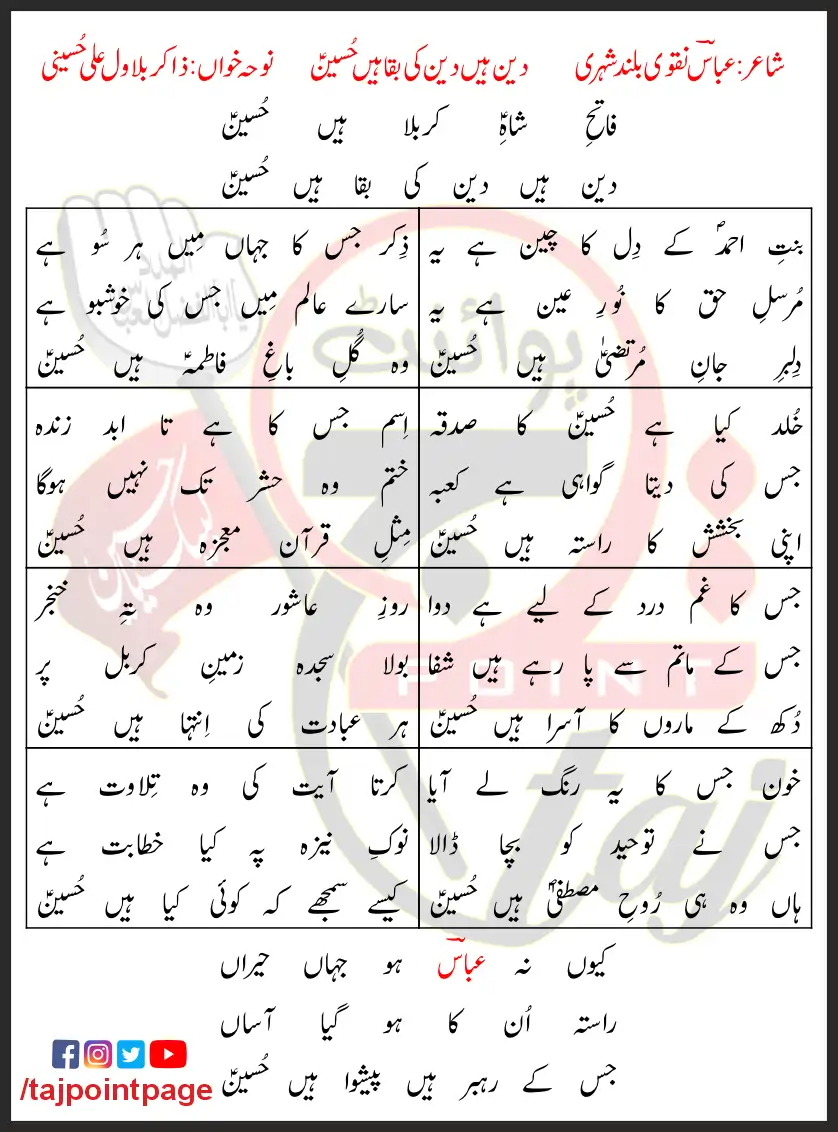 شاعر: عباسؔ نقوی بلند شہری دین ہیں دین کی بقا ہیں حُسینؑ نوحہ خواں: ذاکر بلاول علی حُسینی
فاتحِ شاہِؑ کربلا ہیں حُسینؑ
دین ہیں دین کی بقا ہیں حُسینؑ
بنتِ احمدؐ کے دِل کا چین ہے یہ
مُرسلِ حق کا نُورِ عین ہے یہ
دِلبرِ جانِ مُرتضیٰؑ ہیں حُسینؑ
ذِکر جس کا جہاں مِیں ہر سُو ہے
سارے عالم مِیں جس کی خوشبو ہے
وہ گُلِ باغِ فاطمہؑ ہیں حُسینؑ
خُلد کیا ہے حُسینؑ کا صدقہ
جس کی دیتا گواہی ہے کعبہ
اپنی بخشش کا راستہ ہیں حُسینؑ
اِسم جس کا ہے تا ابد زندہ
ختم وہ حشر تک نہیں ہوگا
مِثلِ قرآن معجزہ ہیں حُسینؑ
جس کا غم درد کے لیے ہے دوا
جس کے ماتم سے پا رہے ہیں شفا
دُکھ کے ماروں کا آسرا ہیں حُسینؑ
روزِ عاشور وہ تہِ خنجر
بولا سجدہ زمینِ کربل پر
ہر عبادت کی اِنتہا ہیں حُسینؑ
خون جس کا یہ رنگ لے آیا
جس نے توحید کو بچا ڈالا
ہاں وہ ہی رُوحِ مصطفیٰؐ ہیں حُسینؑ
کرتا آیت کی وہ تِلاوت ہے
نوکِ نیزہ پہ کیا خطابت ہے
کیسے سمجھے کہ کوئی کیا ہیں حُسینؑ
کیوں نہ عباسؔ ہو جہاں حیراں
راستہ اُن کا ہو گیا آساں
جس کے رہبر ہیں پیشوا ہیں حُسینؑ
/tajpointpage
پوائنٹ
POINT
taj